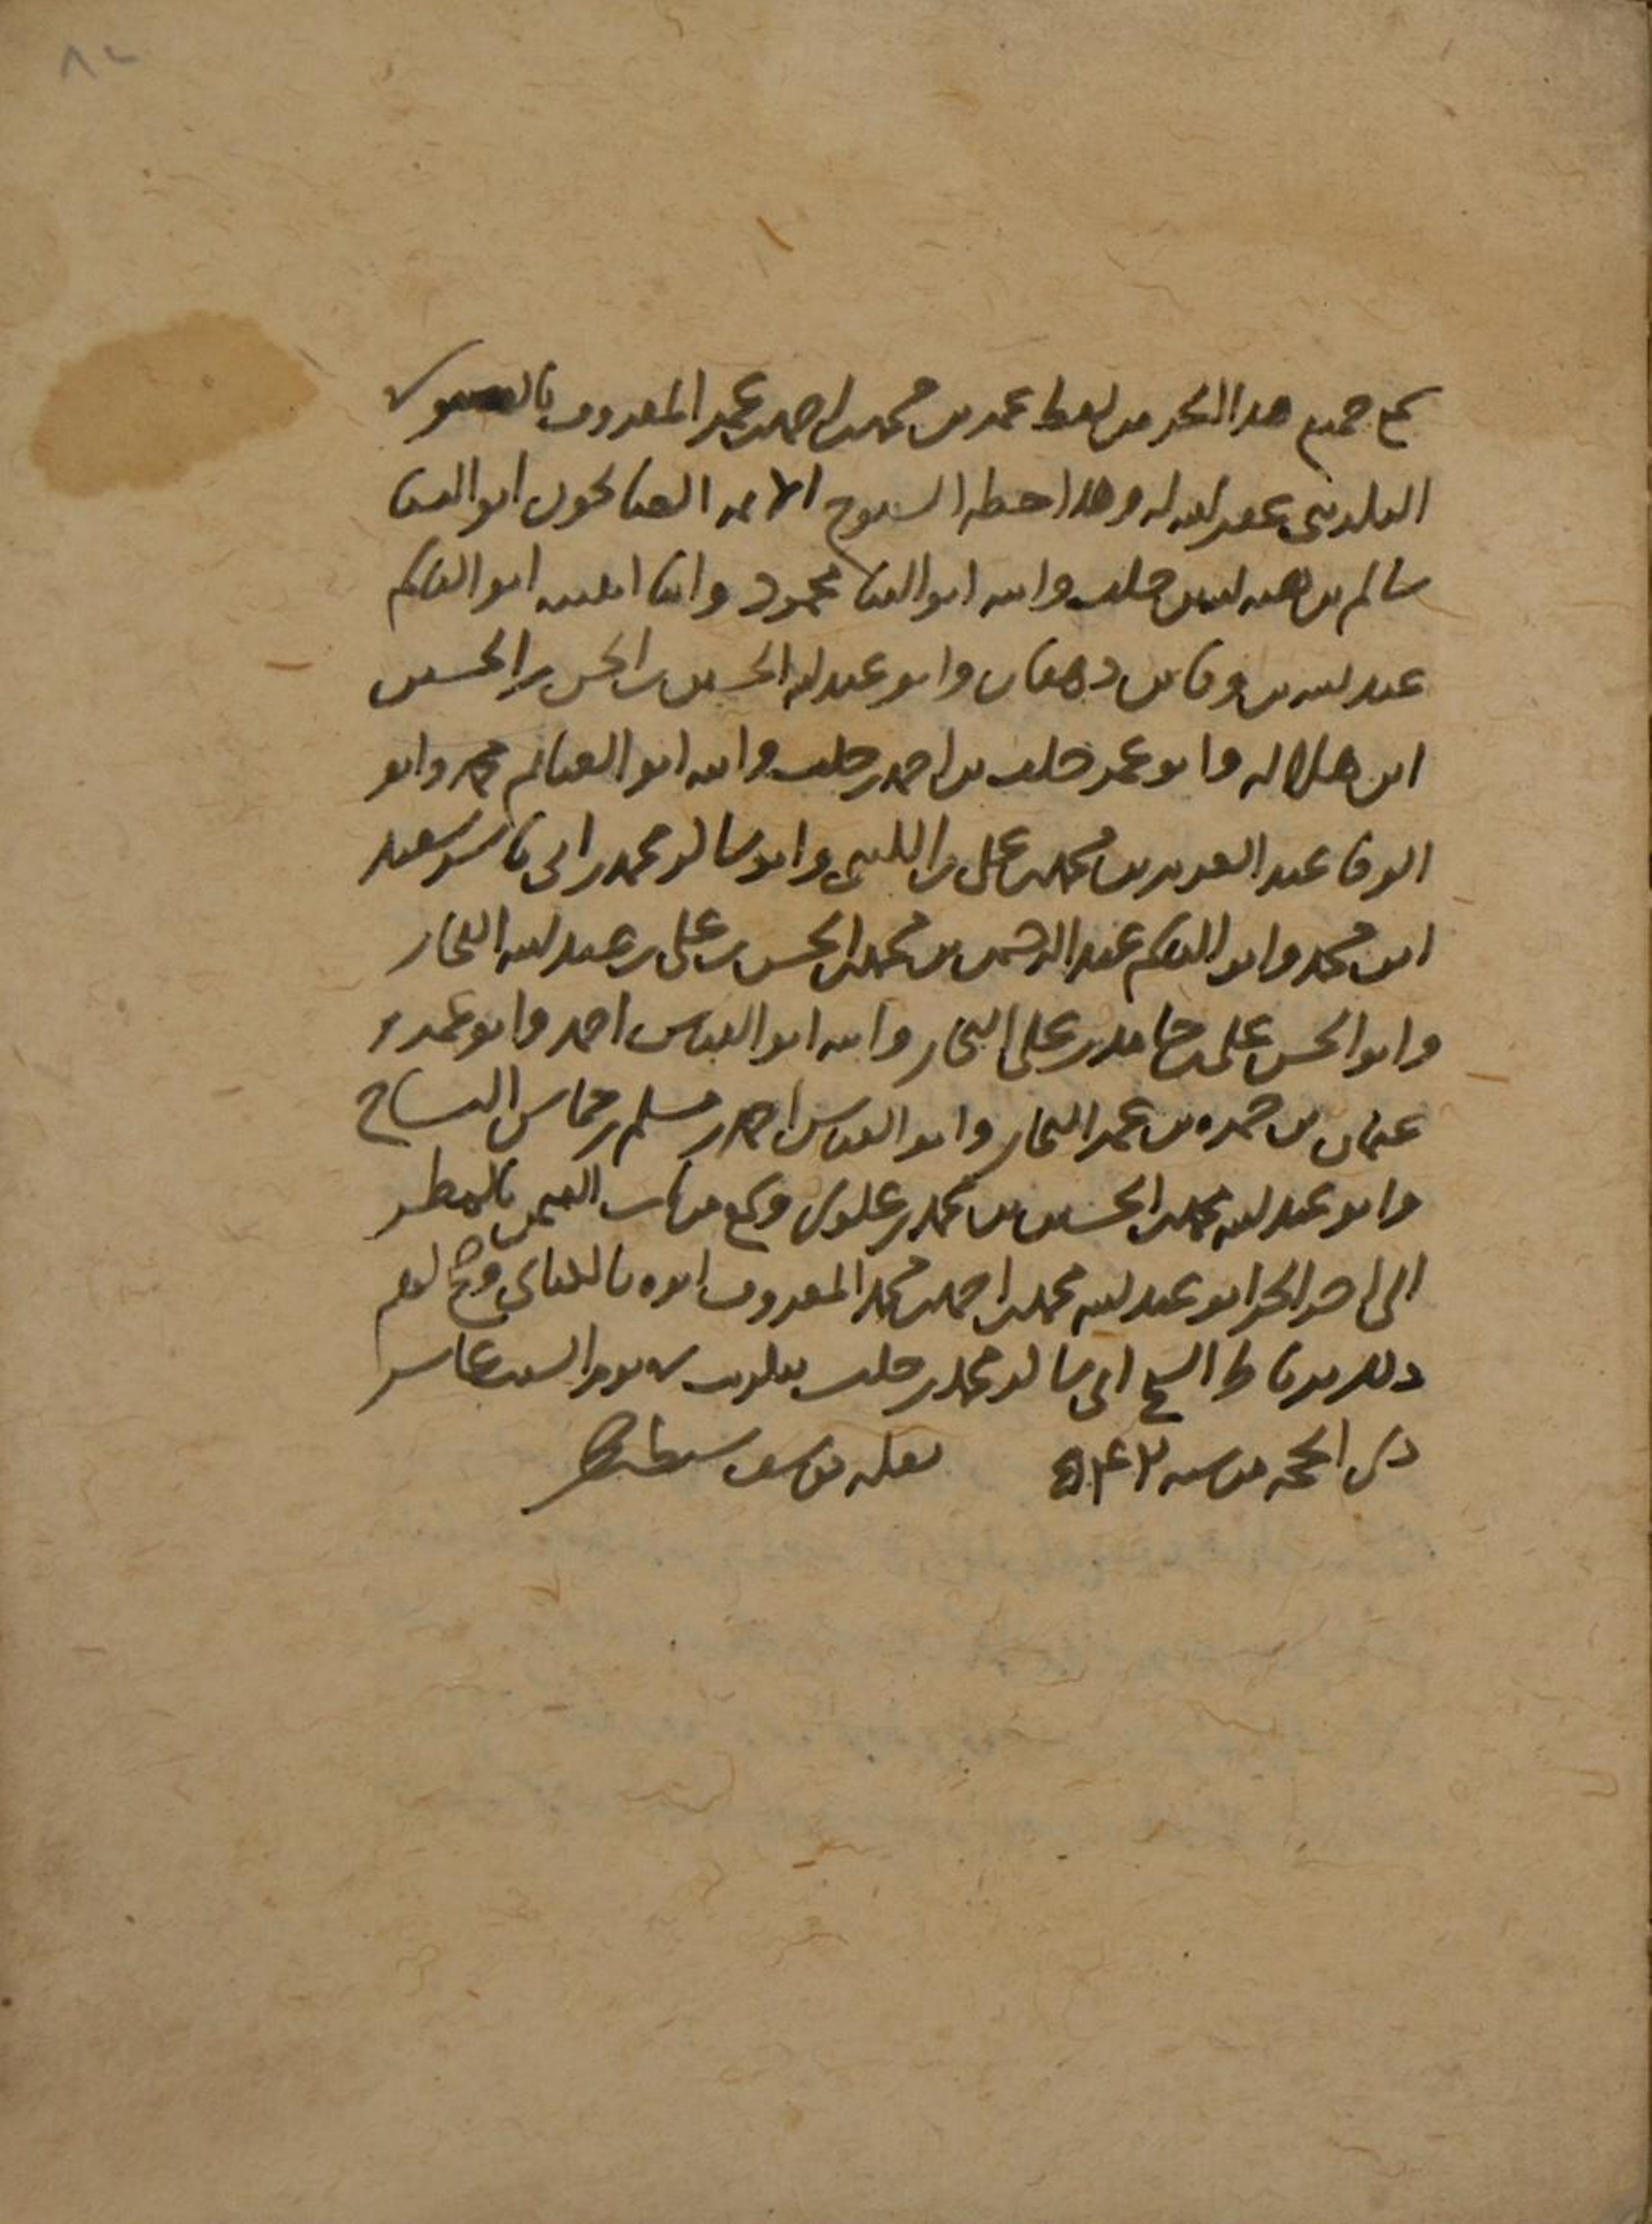 ٨٢
سمع جميع هذا الجزء من لفظ عمر بن محمد بن احمد بن عمر المعروف
غفر الله له وهذا خطه الشيوخ الائمة الصالحون ابو البنا
سالم بن هبة الله بن خلف وابنه ابو الثنا محمود وابنا ابو القاسم
عبد الله بن وفا بن دهقان وابو عبد الله الحسين بن الحسن بن الحسين
ابن هلالة وابو عمر خلف بن احمد بن خلف وابنه ابو الغنائم محمد وابو
الوفا عبد العزيز بن محمد بن علي بن الليثي وابو طالب محمد بن ابي ياسر سعيد
ابن محمد وابو القاسم عبد الرحمن بن محمد بن الحسن بن علي بن عبد الله النجار
وابو الحسن علي بن حامد بن علي النجار وابنه ابو العباس احمد وابو عمرو
عثمان بن حمزة بن عمر النجار وابو العباس احمد بن مسلم بن حماس النساج
وابو عبد الله محمد بن الحسين بن محمد بن علوي وسمع من باب التيمن بالمطر
الى اخر الجزء ابو عبد الله محمد بن احمد بن محمد المعروف ابوه وصح لهم
ذلك برباط الشيخ ابي طالب محمد بن خلف يوم السبت عاشر
ذي الحجة من سنة ٥٤٢ نقله يوسف سبط بن حجر